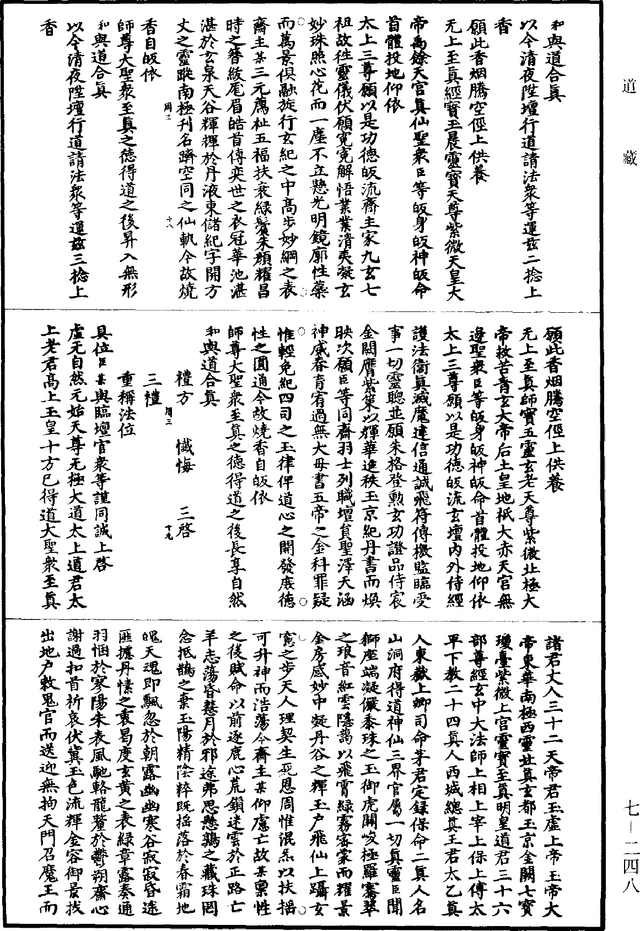 道藏
和與道合真
以今清夜陞壇行道請法衆等運兹二捻上
香
願此香烟騰空徑上供養
无上至真經寶玉晨靈寶天尊紫微天皇大
帝禹餘天宮真仙聖衆臣等皈身皈神皈命
首體投地仰依
太上三尊願以是功德皈流齋主家九玄七
祖故往靈儀伏願寃寃解悟業業清夷凝玄
妙珠照心花而一塵不立懸光明鏡廓性藥
而萬景俱融旋行玄紀之中高步妙綱之表
齋主某三元薦祉五福扶衰綠鬢朱顏耀昌
時之簪紱厖眉皓首傳奕世之衣冠華池湛
湛於玄泉天谷輝輝於丹液東儲紀字開方
丈之靈蹤南極刋名躋空同之仙軌今故燒
香自皈依
師尊大聖衆至真之德得道之後昇入無形
和與道合真
以今清夜陞壇行道請法衆等運兹三捻上
香
願此香烟騰空徑上供養
无上至真師寶五靈玄老天尊紫微北極大
帝救苦青玄大帝后土皇地祇大赤天宮無
邊聖衆臣等皈身皈神皈命首體投地仰依
太上三尊願以是功德皈流玄壇內外侍經
護法衛真滅魔達信通誠飛符傳檄監臨受
事一切靈聰並願朱格登勲玄功證品侍宸
金闕膺紫籙以輝華進秩玉京紀丹書而煥
映次願臣等同齋羽士列職壇負聖澤天涵
神威春育宥過無大毋書五帝之金科罪疑
惟輕免犯四司之玉律俾道心之開發庶德
性之圓通今故燒香自皈依
師尊大聖衆至真之德得道之後長享自然
和與道合真
禮方 懺悔 三啓
三禮
重稱法位
具位臣某與臨壇官衆等謹同誠上啓
虛无自然元始天尊无極大道太上道君太
上老君高上玉皇十方已得道大聖衆至真
諸君丈人三十二天帝君玉虛上帝玉帝大
帝東華南極西靈北真玄都玉京金闕七寶
瓊臺紫微上宮靈寶至真明皇道君三十六
部尊經玄中大法師上相上宰上保上傅太
平下教二十四真人西城總真王君太乙真
人東嶽上卿司命茅君定錄保命二真人名
山洞府得道神仙三界官屬一切真靈臣聞
獅座端凝儼黍珠之玉御虎關岌極羅鶱翠
之琅音紅雲隱靄以飛霄綠霧客裳而耀景
金房感妙中凝丹谷之輝玉戶飛仙上躡女
寬之步天人理契生死恩周惟混炁以扶摇
可升神而浩蕩今齋主某仰慮亡故某稟性
之後賦命以前逐鹿心荒鎖迷雲於正路亡
羊志蕩昏慧月於邪途弗思懸鶉之藏珠罔
念抵鵲之棄玉陽精陰粹既摇落於春霜地
魄天魂即飄忽於朝露幽幽寒谷寂寂昏途
匪攄丹愫之衷曷度玄黄之表綠章露奏通
羽悃於寥陽朱表風馳輅龍釐於鬱朔齋心
謝過扣首祈哀伏冀玉色流輝金容御景拔
出地戶敕鬼官而送迎無拘天門召魔王而
七－二四八